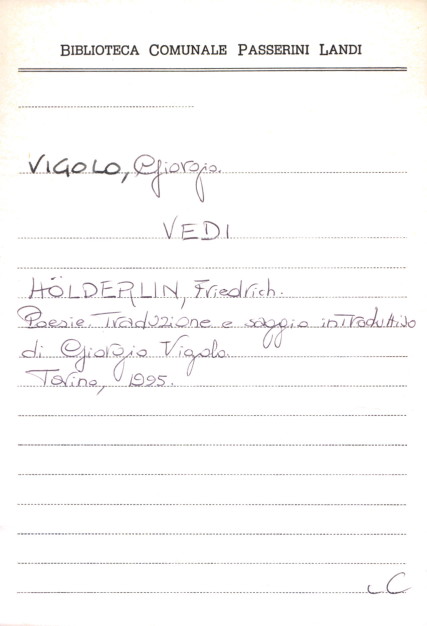 BIBLIOTECA COMUNALE PASSERINI LANDI
VIGOLO, Giorgio.
VEDI
HÖLDERLIN, Friedrich.
Poesie. Traduzione e saggio introduttivo
di Giorgio Vigolo.
Torino, 1995.